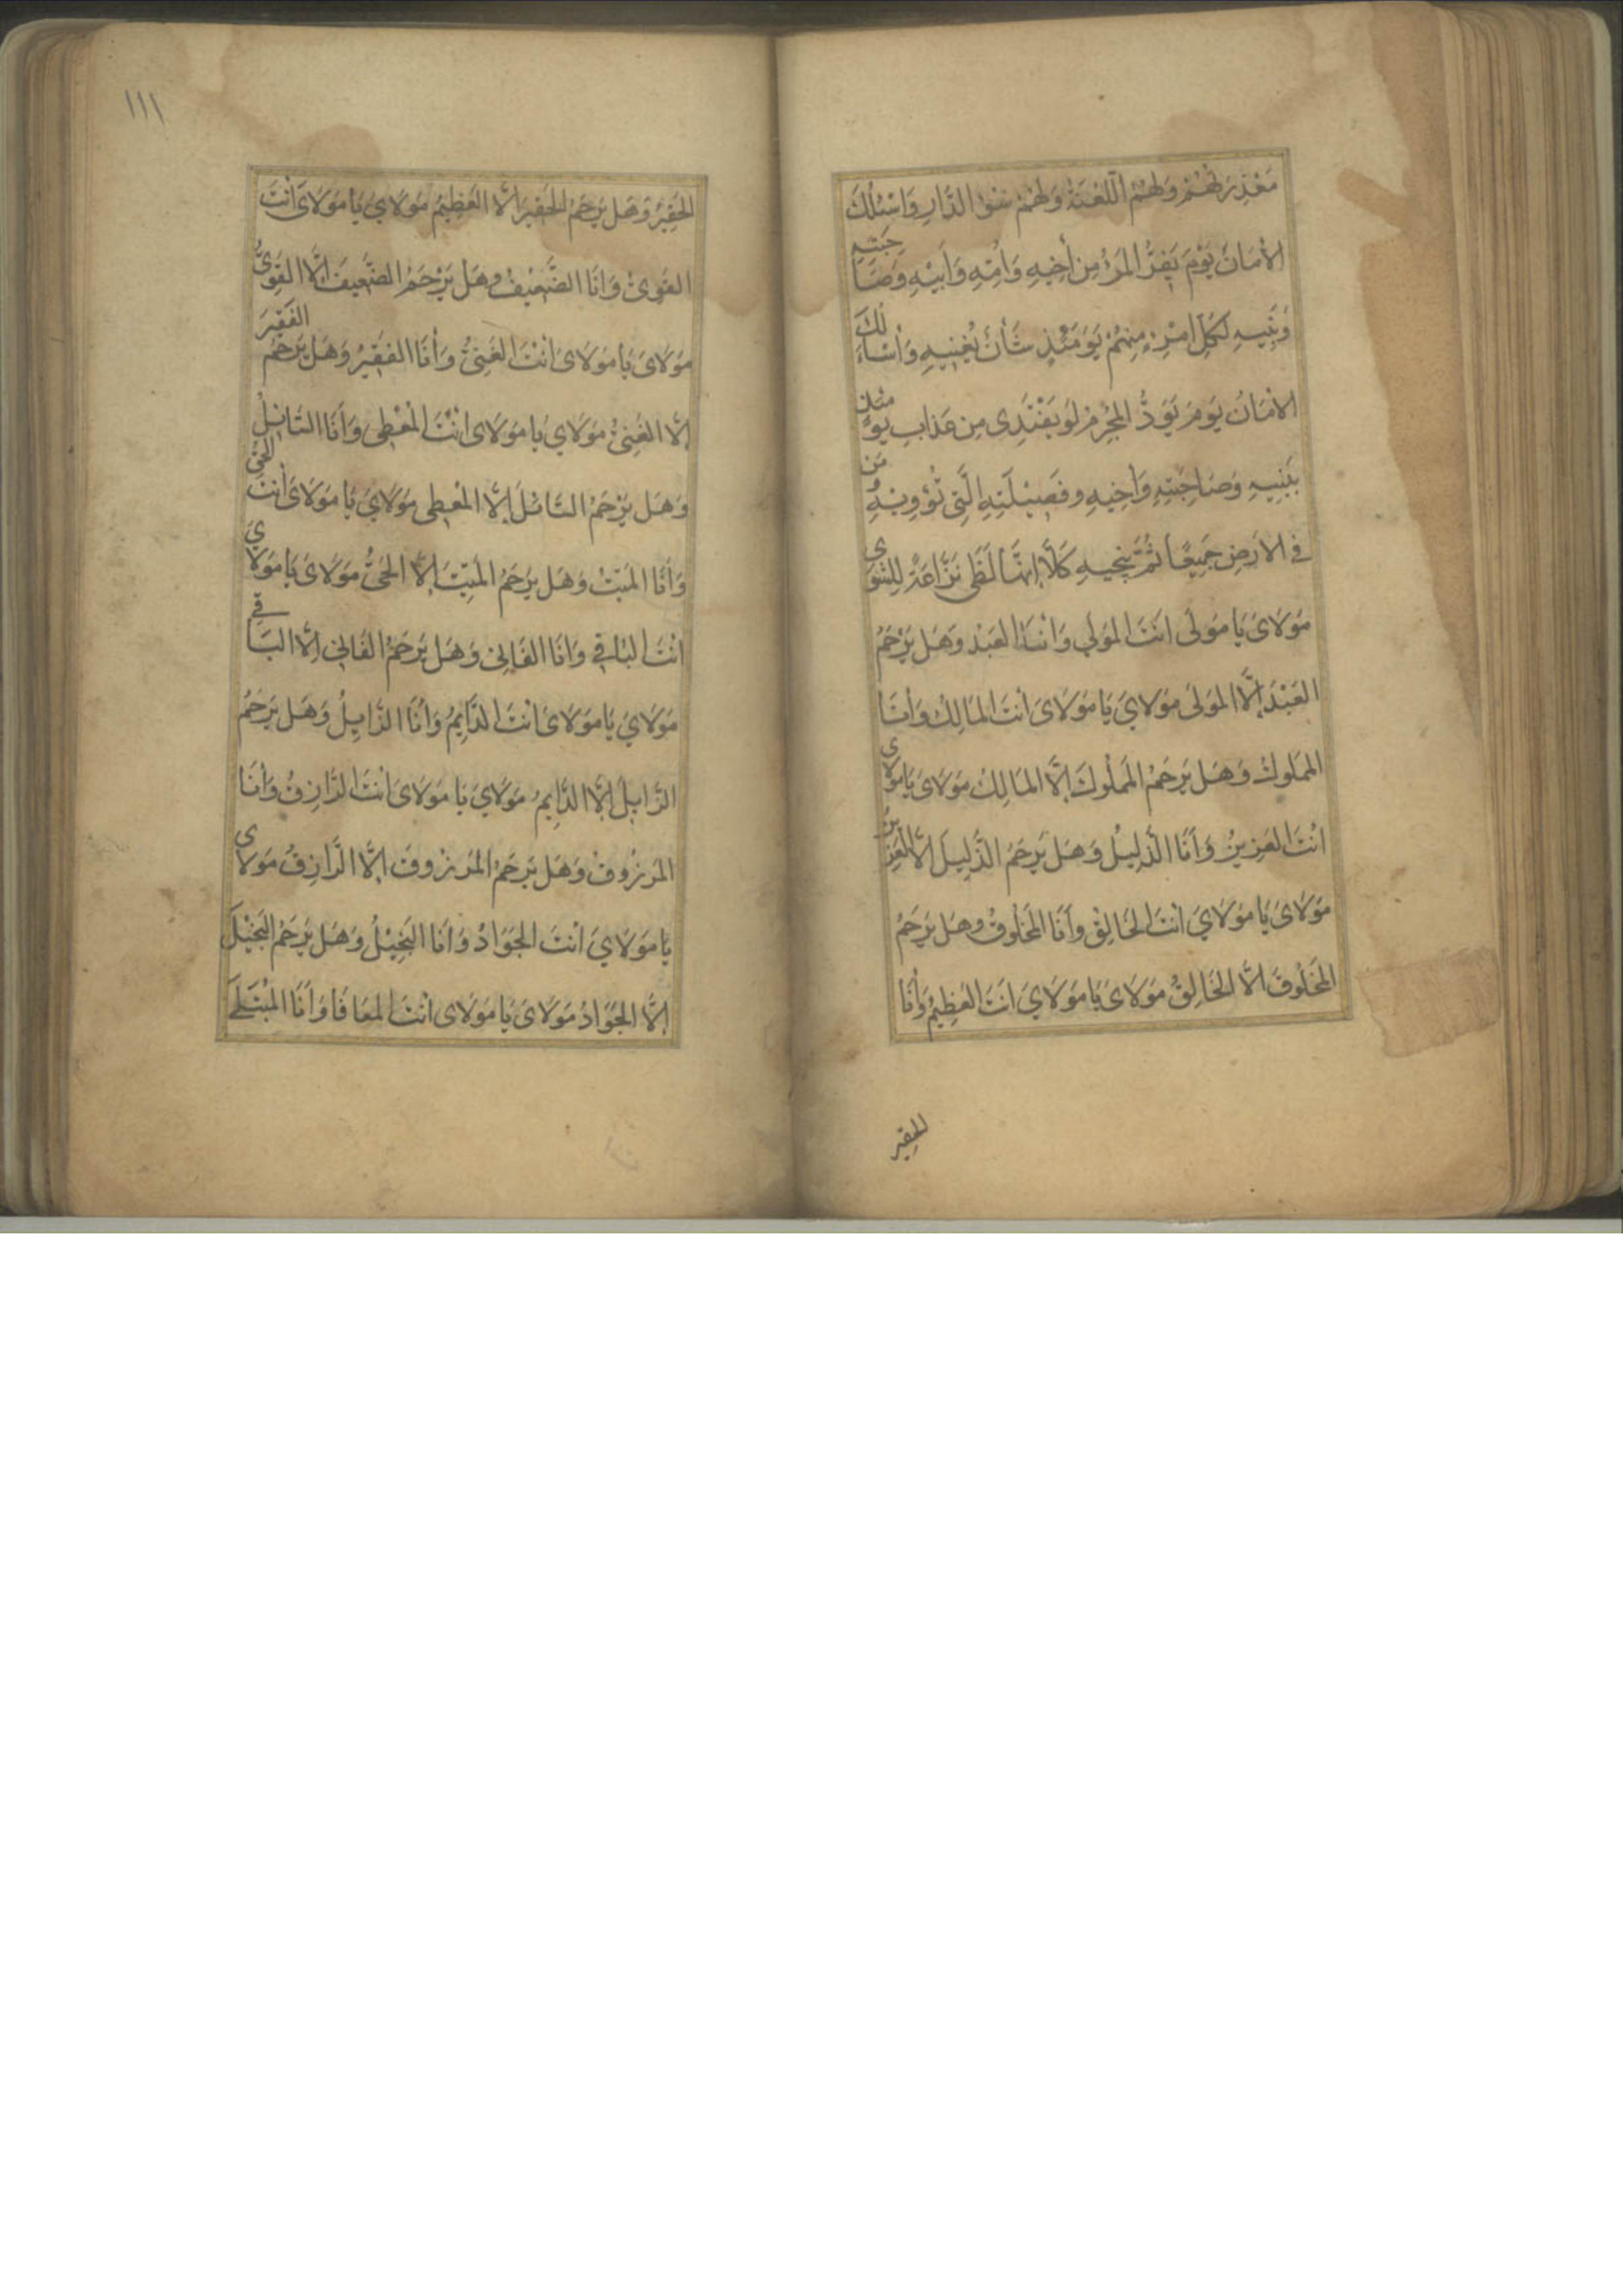 مَعْذِرَتُهُمْ وَلَهُمُ اللَّعْنَةُ وَلَهُمْ سُوءُ الدَّارِ وَاَسْئَلُكَ
الْاَمَانَ يَوْمَ يَفِرُّ الْمَرْءُ مِنْ أَخِيهِ وَاُمِّهِ وَاَبِيهِ وَصَاحِبَتِهِ
وَبَنِيهِ لِكُلِّ امْرِءٍ مِنْهُمْ يَوْمَئِذٍ شَأْنٌ يُغْنِيهِ وَأَسْاَلُكَ
الْاَمَانَ يَوْمَ يَوَدُّ الْمُجْرِمُ لَوْ يَفْتَدِى مِنْ عَذَابِ يَوْمَئِذٍ
بِبَنِيهِ وَصَاحِبَتِهِ وَاَخِيهِ وَفَصِيلَتِهِ الَّتِى تُؤْوِيهِ وَمَن
فِى الْاَرْضِ جَمِيعًا ثُمَّ يُنْجِيهِ كَلَّا إِنَّهَا لَظَى نَزَّاعَةً لِلشَّوَى
مَوْلَاىَ يَا مَوْلَى اَنْتَ الْمَوْلَى وَاَنَا الْعَبْدُ وَهَلْ يَرْحَمُ
الْعَبْدَ إِلَّا الْمَوْلَى مَوْلَايَ يَا مَوْلَاىَ اَنْتَ الْمَالِكُ وَأَنَا
الْمَمْلُوكُ وَهَلْ يَرْحَمُ الْمَمْلُوكَ إِلَّا الْمَالِكُ مَوْلَاىَ يَا مَوْلَاى
اَنْتَ الْعَزِيزُ وَاَنَا الذَّلِيلُ وَهَلْ يَرْحَمُ الذَّلِيلَ اِلَّا الْعَزِيزُ
مَوْلَاىَ يَا مَوْلَايَ اَنْتَ الْخَالِقُ وَأَنَا الْمَخْلُوقُ وَهَلْ يَرْحَمُ
الْمَخْلُوقَ اِلَّا الْخَالِقُ مَوْلَاىَ يَا مَوْلَايَ اَنْتَ الْعَظِيمُ وَأَنَا
الحقير
١١١
الْحَقِيرُ وَهَلْ يَرْحَمُ الْحَقِيرَ اِلَّا الْعَظِيمُ مَوْلَايَ يَا مَوْلَاىَ أَنْتَ
الْقَوِىُّ وَاَنَا الضَّعِيفُ وَهَلْ يَرْحَمُ الضَّعِيفَ إِلَّا الْقَوِىُّ
مَوْلَاىَ يَا مَوْلَاىَ اَنْتَ الْغَنِىُّ وَأَنَا الْفَقِيرُ وَهَلْ يَرْحَمُ الْفَقِيرَ
اِلَّا الْغَنِىُّ مَوْلَايَ يَا مَوْلَاىَ اَنْتَ الْمُعْطِى وَاَنَا السَّائِلُ
وَهَلْ يَرْحَمُ السَّائِلَ إِلَّا الْمُعْطِى مَوْلَايَ يَا مَوْلَاىَ أَنْتَ الْحَىُّ
وَأَنَا الْمَيِّتُ وَهَلْ يَرْحَمُ الْمَيِّتَ إِلَّا الْحَىُّ مَوْلَاىَ يَا مَوْلَايَ
اَنْتَ الْبَاقِى وَاَنَا الْفَانِى وَهَلْ يَرْحَمُ الْفَانِى اِلَّا الْبَاقِى
مَوْلَايَ يَا مَوْلَاىَ اَنْتَ الدَّايِمُ وَأَنَا الزَّايِلُ وَهَلْ يَرْحَمُ
الزَّايِلَ إِلَّا الدَّايِمُ مَوْلَايَ يَا مَوْلَاىَ اَنْتَ الرَّازِقُ وَأَنَا
الْمَرْزُوقُ وَهَلْ يَرْحَمُ الْمَرْزُوقَ اِلَّا الرَّازِقُ مَوْلَاى
يَا مَوْلَايَ اَنْتَ الْجَوَادُ وَاَنَا الْبَخِيلُ وَهَلْ يَرْحَمُ الْبَخِيلَ
إِلَّا الْجَوَادُ مَوْلَاىَ يَا مَوْلَاىَ اَنْتَ الْمُعَافَا وَاَنَا الْمُبْتَلَى